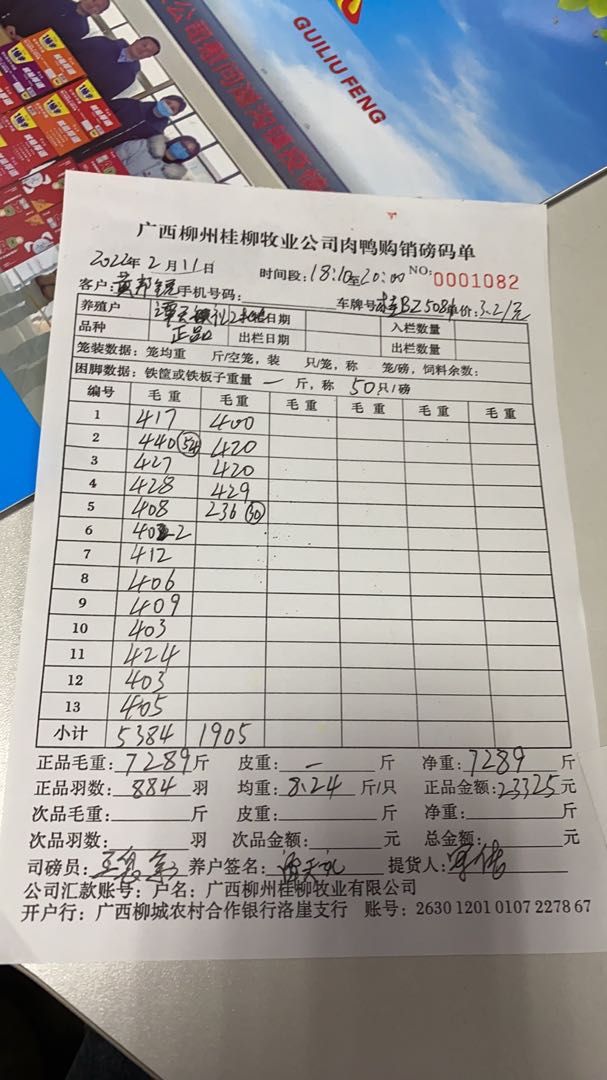 GUILIU FENG
广西柳州桂柳牧业公司肉鸭购销磅码单
2022年2月11日 时间段:18:10至20:00 NO:0001082
客户:黄邦 手机号码: 车牌号:桂BZ508 单价:3.21元
养殖户 日期 入栏数量
品种 正品 出栏日期 出栏数量
笼装数据:笼均重 斤/空笼,装 只/笼,称 笼/磅,饲料余数:
困脚数据:铁筐或铁板子重量 一 斤,称 50只/磅
编号 毛重 毛重 毛重 毛重 毛重 毛重
1 417 400
2 440 54 420
3 427 420
4 428 429
5 408 236 30
6 402
7 412
8 406
9 409
10 403
11 424
12 403
13 405
小计 5384 1905
正品毛重:7289斤 皮重:一斤 净重:7289斤
正品羽数:884羽 均重:8.24斤/只 正品金额:23325元
次品毛重: 斤 皮重: 斤 净重: 斤
次品羽数: 羽 次品金额: 元 总金额: 元
司磅员: 养户签名: 提货人:
公司汇款账号:户名:广西柳州桂柳牧业有限公司
开户行:广西柳城农村合作银行洛崖支行 账号:2630 1201 0107 2278 67